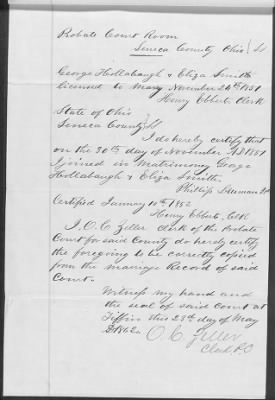 Probate Court Room
Seneca County Ohio } SS
George Hollabaugh & Eliza Smith
licensed to Marry November 26th 1851
Henry Ebbert Clerk
State of Ohio
Seneca County } SS
I do hereby certify that
on the 30th day of November AD 1851
I joined in Matrimony George
Hollabaugh & Eliza Smith
Phillip
Certified January 10th 1852
Henry Ebbert, Clk
I. O. C. Zeller Clerk of the Probate
Court for said County do hereby certify
the foregoing to be correctly copied
from the marriage Record of said
Court.
Witness my hand and
the seal of said Court at
Tiffin this 23d day of May
O. C. Zeller
Clerk P.C